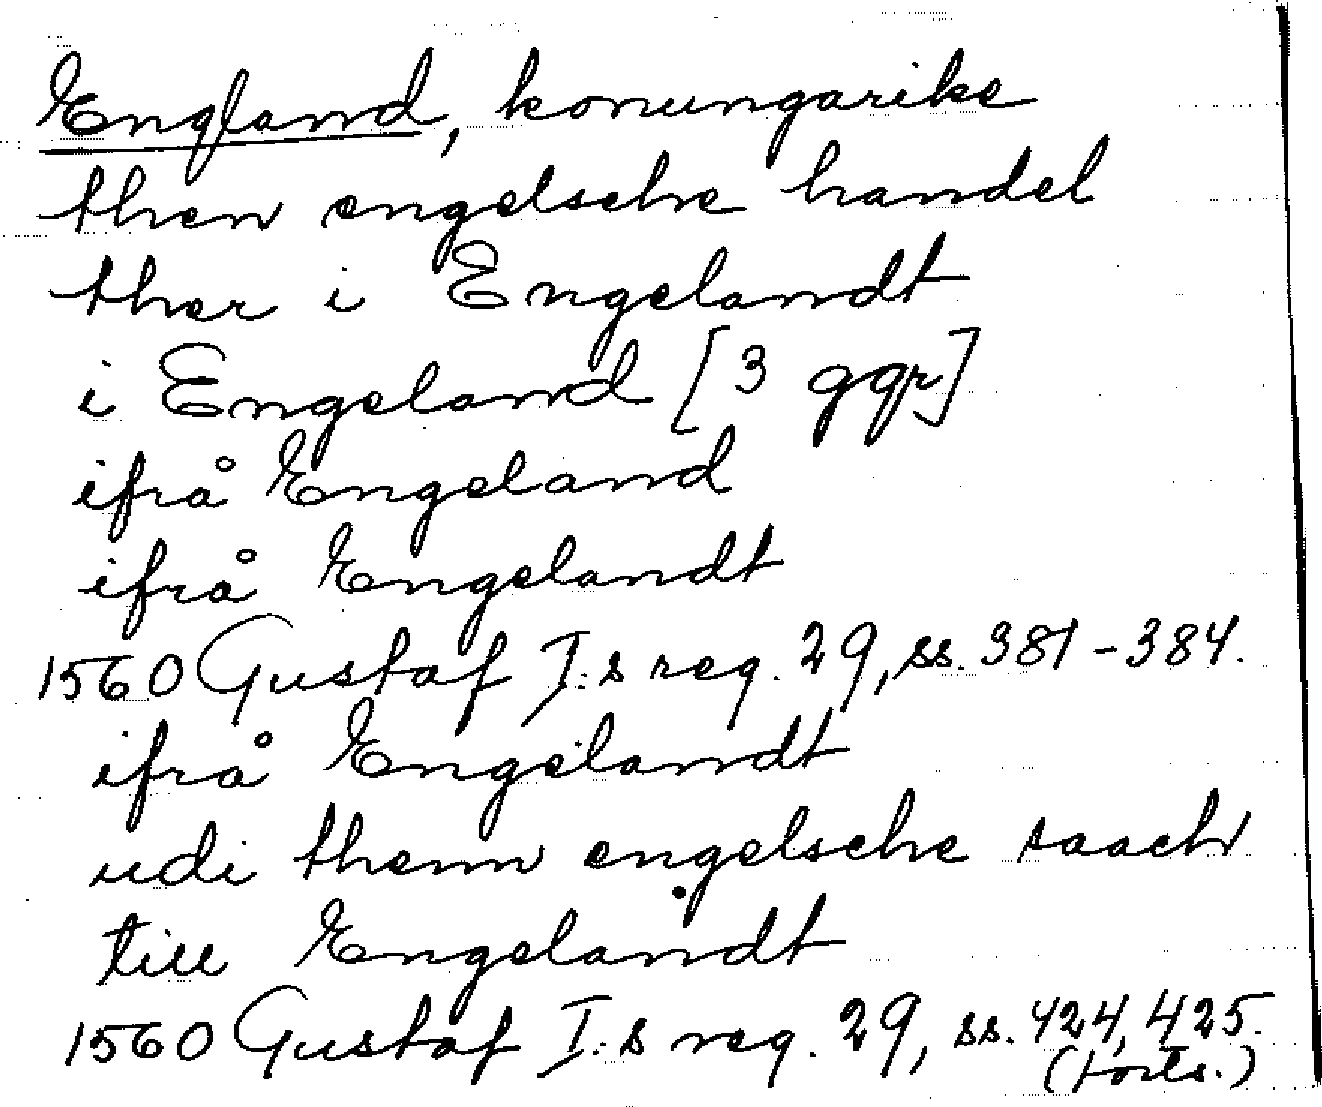 England, konungarike
then engelsche handel
ther i Engelandt
i Engeland [3 ggr]
ifrå Engeland
ifrå Engelandt
1560 Gustaf I:s reg. 29, ss. 381-384.
ifrå Engelandt
udi thenn engelsche saach
till Engelandt
1560 Gustaf I:s reg. 29, ss. 424, 425.
(forts.)